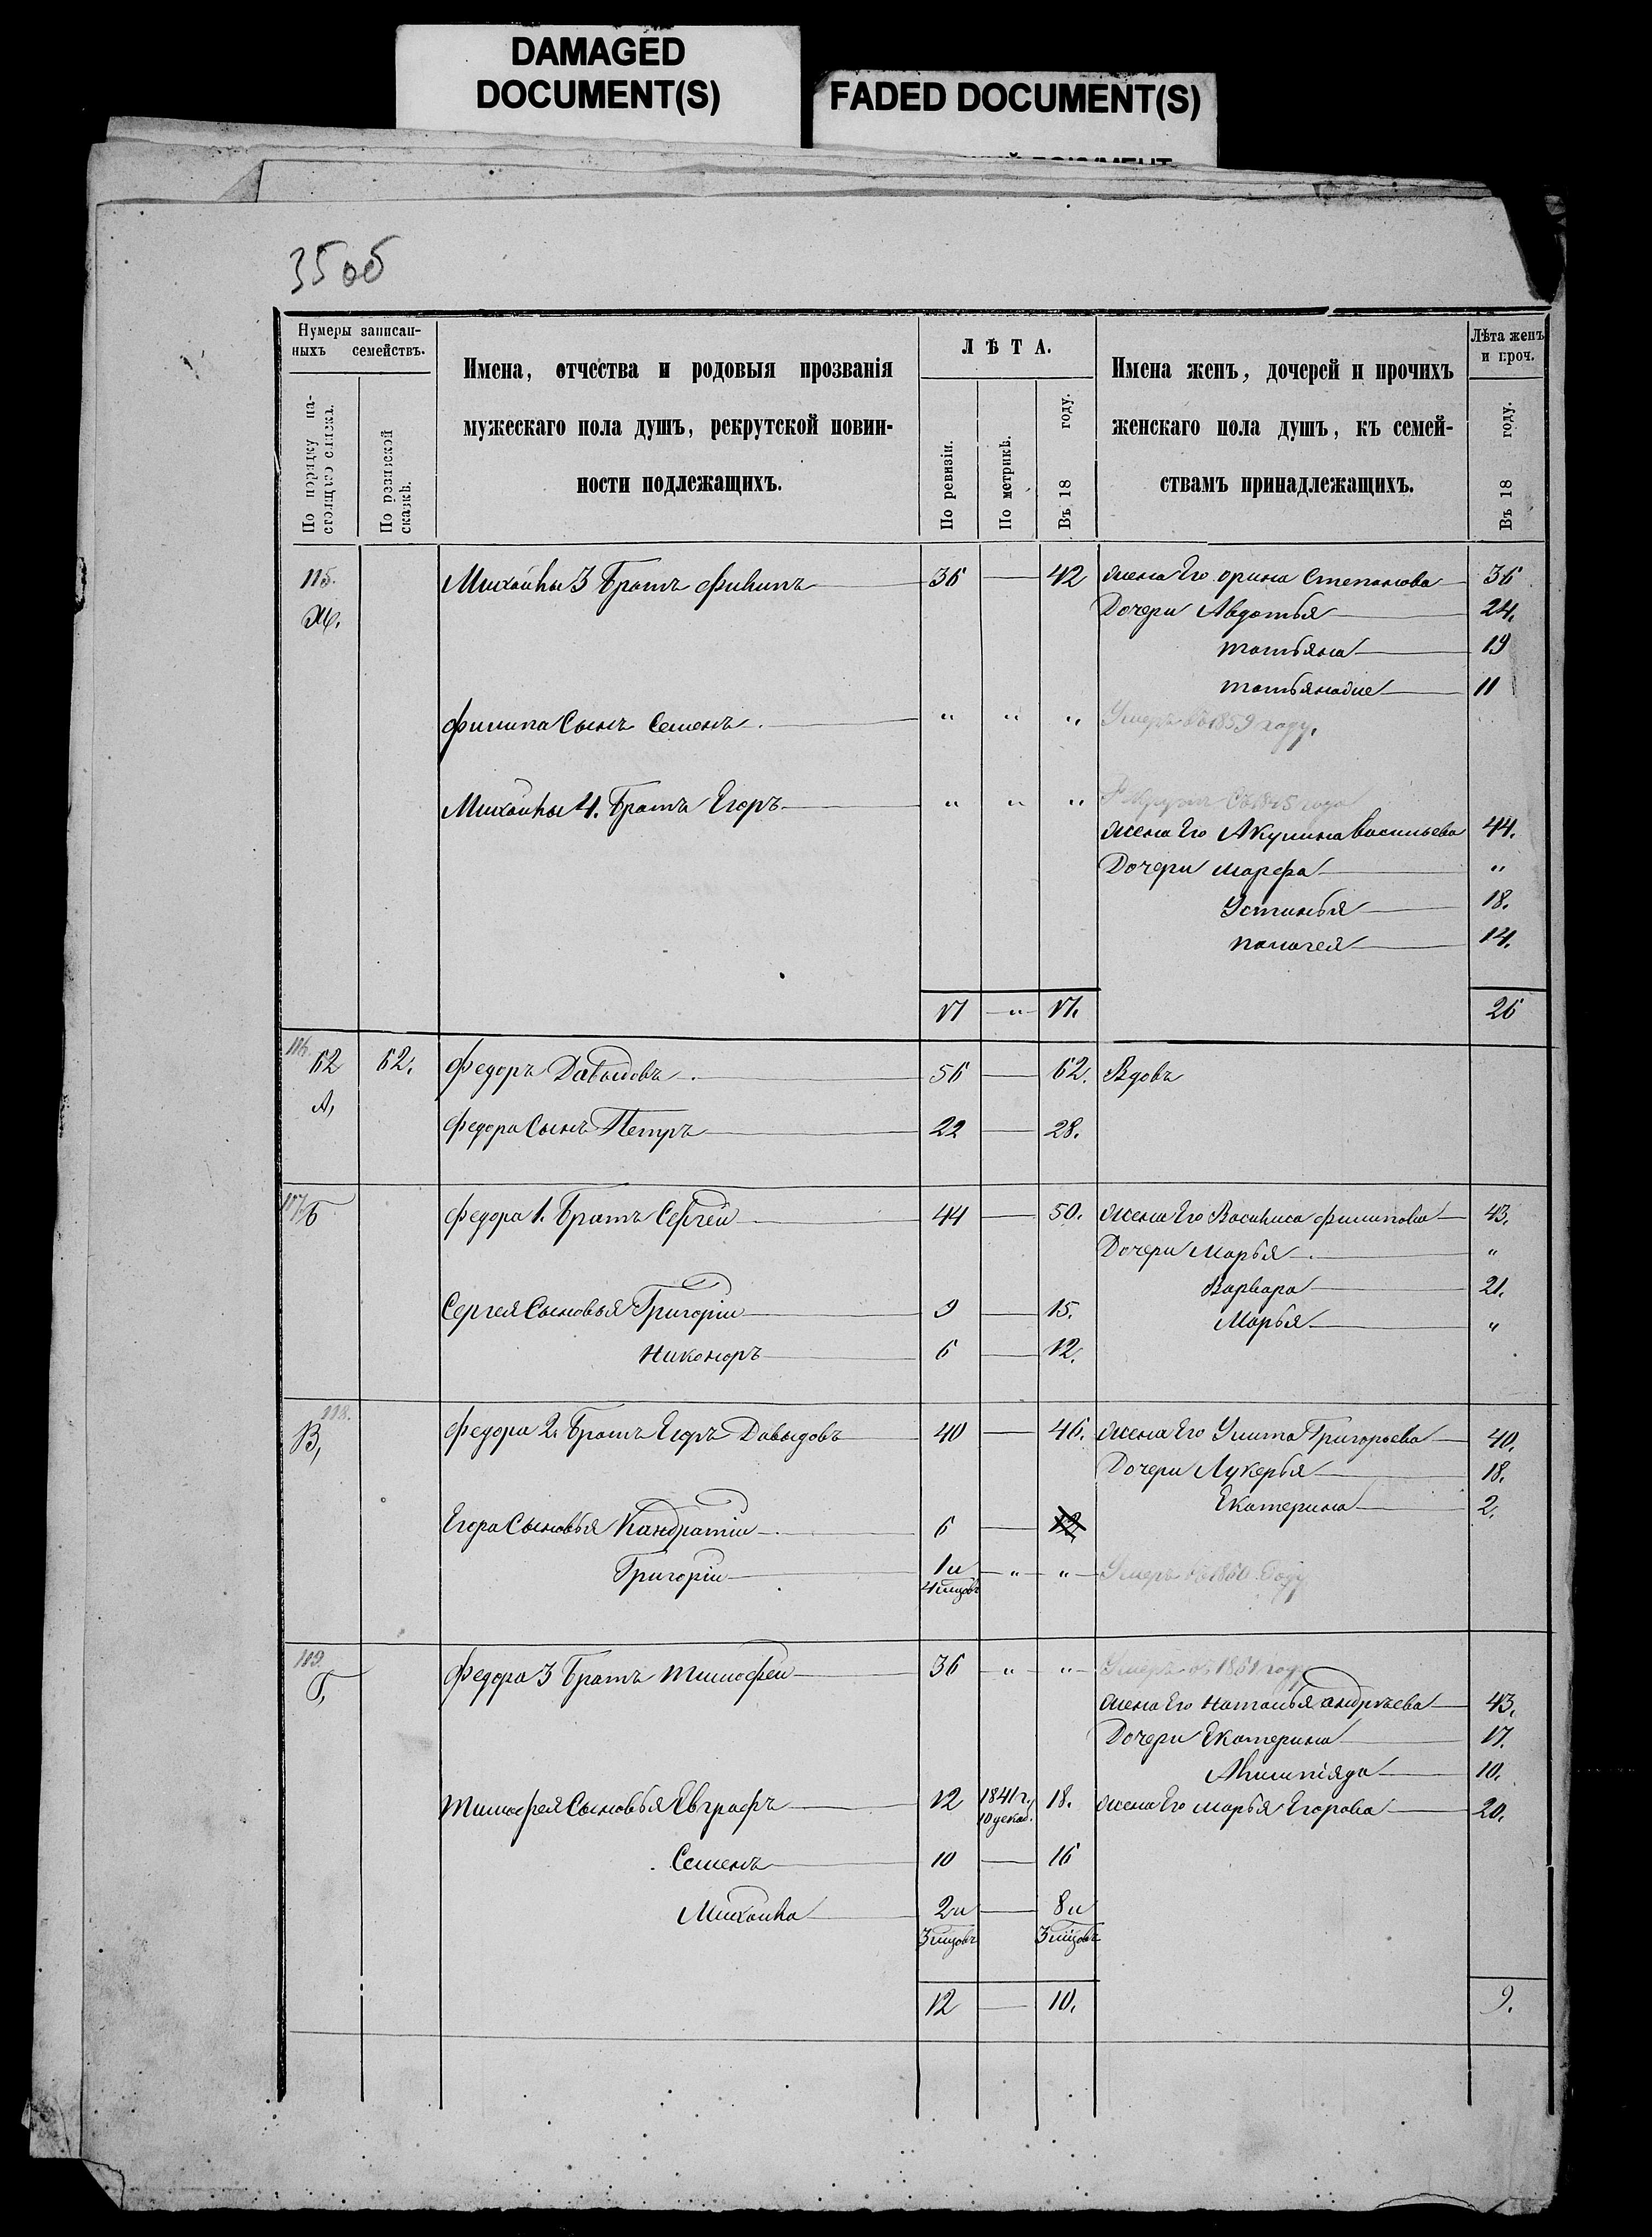 DAMAGED
DOCUMENT(S)
FADED DOCUMENT(S)
35 об
Нумеры записан-
ныхъ семействъ.
По порядку на-
стоящаго списка.
По ревизской
сказкѣ.
Имена, отчества и родовыя прозванія
мужескаго пола душъ, рекрутской повин-
ности подлежащихъ.
ЛѢТА.
По ревизіи.
По метрикѣ.
Въ 18 году.
Имена женъ, дочерей и прочихъ
женскаго пола душъ, къ семей-
ствамъ принадлежащихъ.
Лѣта женъ
и проч.
Въ 18 году.
115. Михайлы 3 Братъ Филипъ 36 42 жена Его орина Степанова 36
Дочери Авдотья 24.
татьяна 19
татьяна 11
Филипа Сынъ Семенъ " " " Умеръ въ 1859 году.
Михайлы 4. Братъ Егоръ " " "
жена Его Акулина васильева 44.
Дочери марфа "
Устинья 18.
палагея 14.
17 " 17. 26
116. 62 62. Федоръ Давыдовъ 56 62. Вдовъ
А,
Федора Сынъ Петръ 22 28.
117. Б Федора 1. Братъ Сергеи 44 50. жена Его Василиса филипова 43.
Дочери Марья "
Варвара 21.
Сергея Сыновья Григоріи 9 15.
Марья "
Никоноръ 6 12.
118.
В, Федора 2. Братъ Егоръ Давыдовъ 40 46. жена Его Улита Григорьева 40.
Дочери Лукерья 18.
Екатерина 2.
Егора Сыновья Кандратіи 6 12.
Григоріи 1 и " " Умеръ въ 1860 Году
4 мцовъ
119.
Г, Федора 3 Братъ тимофеи 36 " " Умеръ въ 1861 году
жена Его наталья андреева 43.
Дочери Екатерина 17.
Алимпіяда 10.
тимофея Сыновья Евграфъ 12 1841 г. 18. жена Его марья Егорова 20.
10 декаб.
Семенъ 10 16
Михаила 2 и 8 и
3 мцовъ 3 мцовъ
12 10. 9.